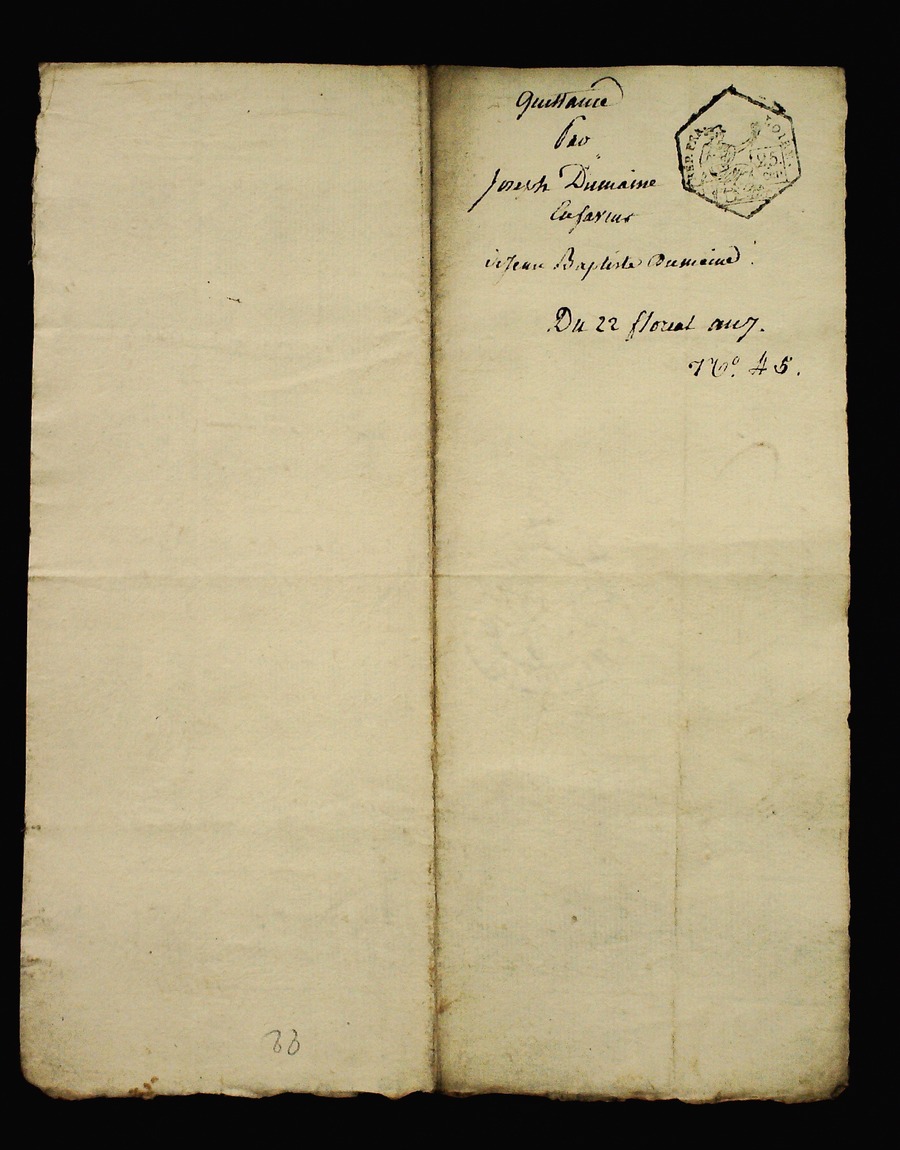 Quittance
Par
Joseph Dumaine
En faveur
de Jean Baptiste Dumaine
Du 22 floreal an 7.
N.º 45.
REP. FRA.
LOIRE
25.
CEN
33